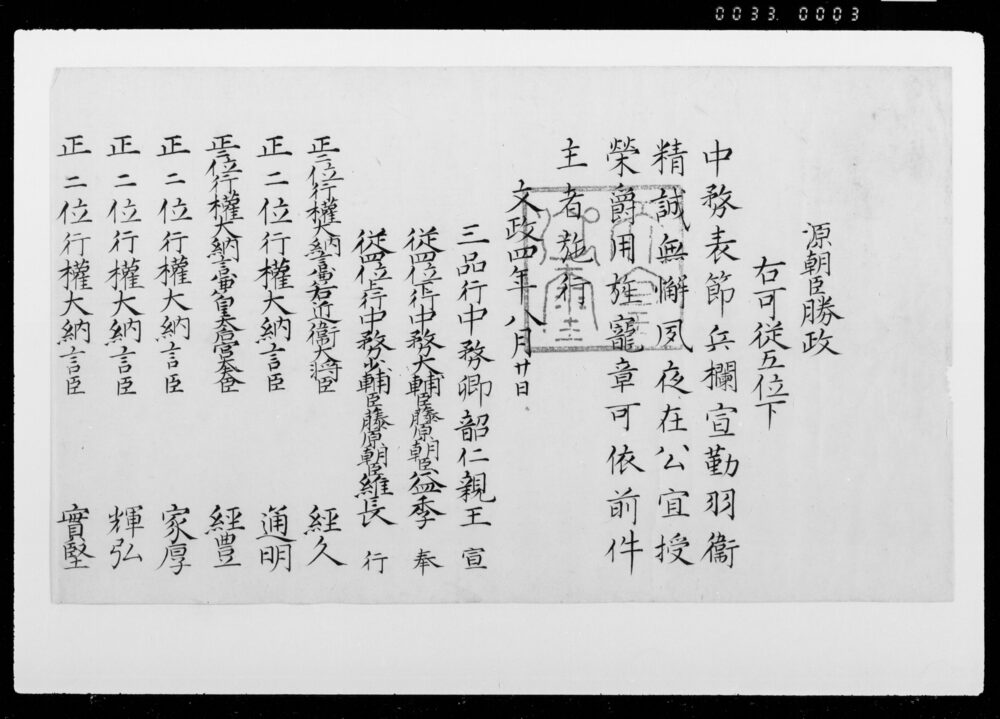 0033.0003
源朝臣勝政
右可従五位下
中務表節兵欄宣勤羽衞
精誠無懈夙夜在公宜授
榮爵用旌寵章可依前件
主者施行
文政四年八月廿日
三品行中務卿韶仁親王宣
従四位上行中務大輔臣藤原朝臣益季奉
従四位上行中務少輔臣藤原朝臣維長行
正二位行權大納言兼右近衞大將臣經久
正二位行權大納言臣通明
正二位行權大納言兼皇太后宮大夫臣經豊
正二位行權大納言臣家厚
正二位行權大納言臣輝弘
正二位行權大納言臣實堅